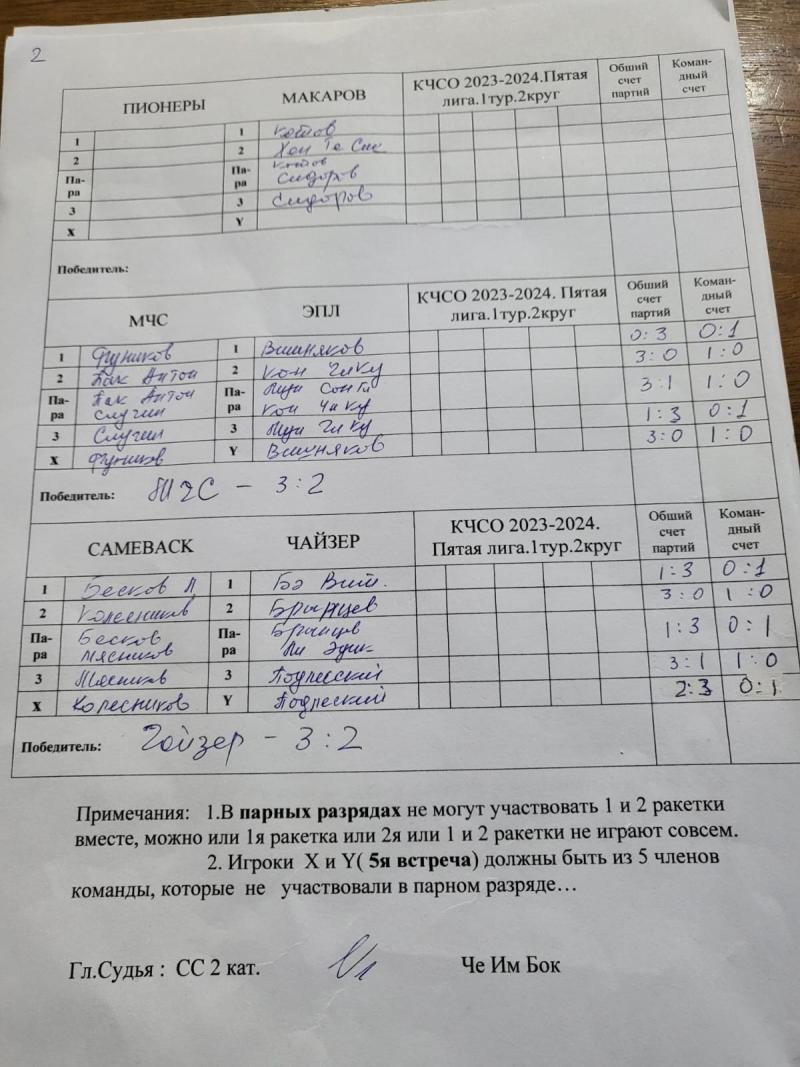 2
ПИОНЕРЫ МАКАРОВ КЧСО 2023-2024.Пятая лига.1тур.2круг Обший счет партий Коман-дный счет
1 1 Котов
2 2 Хон Те Сик
Па-ра Па-ра Котов Сидоров
3 3 Сидоров
X Y
Победитель:
МЧС ЭПЛ КЧСО 2023-2024. Пятая лига.1тур.2круг Обший счет партий Коман-дный счет
1 Фуников 1 Вишняков 0:3 0:1
2 Пак Антон 2 Кон Чику 3:0 1:0
Па-ра Пак Антон Случин Па-ра Кон Чику 3:1 1:0
3 Случин 3 1:3 0:1
X Фуников Y Вишняков 3:0 1:0
Победитель: МЧС – 3:2
CAMEBACK ЧАЙЗЕР КЧСО 2023-2024. Пятая лига.1тур.2круг Обший счет партий Коман-дный счет
1 Бесков Л 1 1:3 0:1
2 Колесников 2 Брынцев 3:0 1:0
Па-ра Бесков Мясников Па-ра Брынцев 1:3 0:1
3 Мясников 3 Подлесский 3:1 1:0
X Колесников Y Подлеский 2:3 0:1
Победитель: Чайзер – 3:2
Примечания: 1.В парных разрядах не могут участвовать 1 и 2 ракетки
вместе, можно или 1я ракетка или 2я или 1 и 2 ракетки не играют совсем.
2. Игроки X и Y( 5я встреча) должны быть из 5 членов
команды, которые не участвовали в парном разряде…
Гл.Судья : СС 2 кат. Че Им Бок